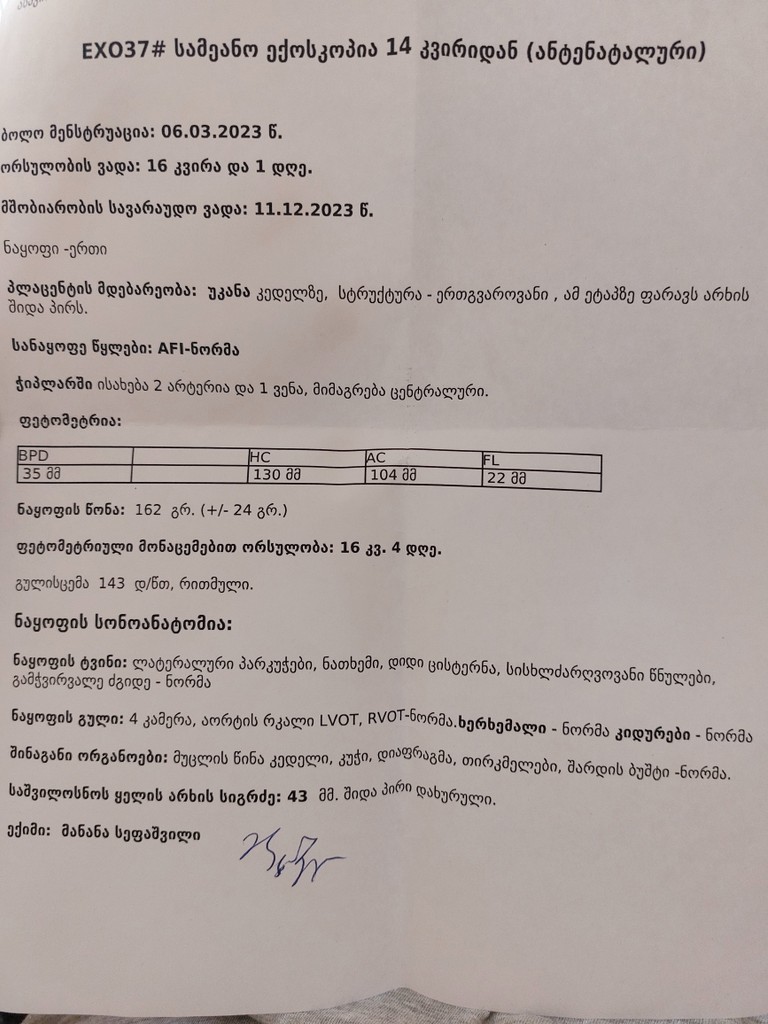 EXO37# სამეანო ექოსკოპია 14 კვირიდან (ანტენატალური)
ბოლო მენსტრუაცია: 06.03.2023 წ.
ორსულობის ვადა: 16 კვირა და 1 დღე.
მშობიარობის სავარაუდო ვადა: 11.12.2023 წ.
ნაყოფი -ერთი
პლაცენტის მდებარეობა: უკანა კედელზე, სტრუქტურა - ერთგვაროვანი , ამ ეტაპზე ფარავს არხის
შიდა პირს.
სანაყოფე წყლები: AFI-ნორმა
ჭიპლარში ისახება 2 არტერია და 1 ვენა, მიმაგრება ცენტრალური.
ფეტომეტრია:
BPD HC AC FL
35 მმ 130 მმ 104 მმ 22 მმ
ნაყოფის წონა: 162 გრ. (+/- 24 გრ.)
ფეტომეტრიული მონაცემებით ორსულობა: 16 კვ. 4 დღე.
გულისცემა 143 დ/წთ, რითმული.
ნაყოფის სონოანატომია:
ნაყოფის ტვინი: ლატერალური პარკუჭები, ნათხემი, დიდი ცისტერნა, სისხლძარღვოვანი წნულები,
გამჭვირვალე ძგიდე - ნორმა
ნაყოფის გული: 4 კამერა, აორტის რკალი LVOT, RVOT-ნორმა.ხერხემალი - ნორმა კიდურები - ნორმა
შინაგანი ორგანოები: მუცლის წინა კედელი, კუჭი, დიაფრაგმა, თირკმელები, შარდის ბუშტი -ნორმა.
საშვილოსნოს ყელის არხის სიგრძე: 43 მმ. შიდა პირი დახურული.
ექიმი: მანანა სეფაშვილი